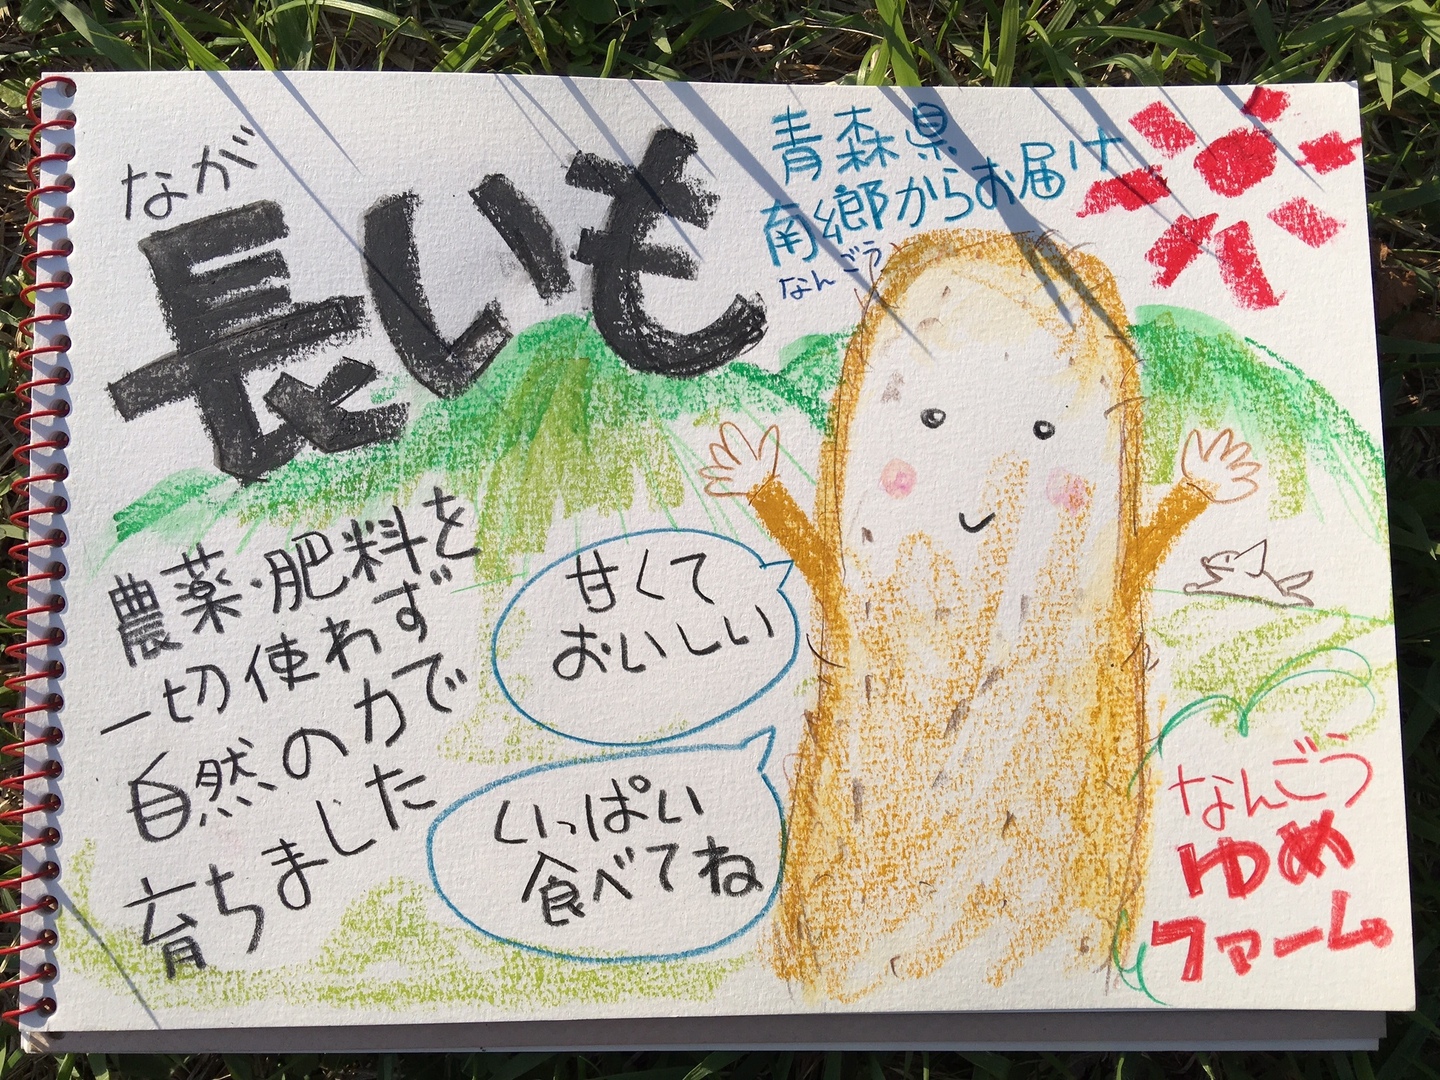 なが
長いも
青森県
南郷からお届け
なんごう
農薬・肥料を
一切使わず
自然の力で
育ちました
甘くて
おいしい
いっぱい
食べてね
なんごう
ゆめ
ファーム